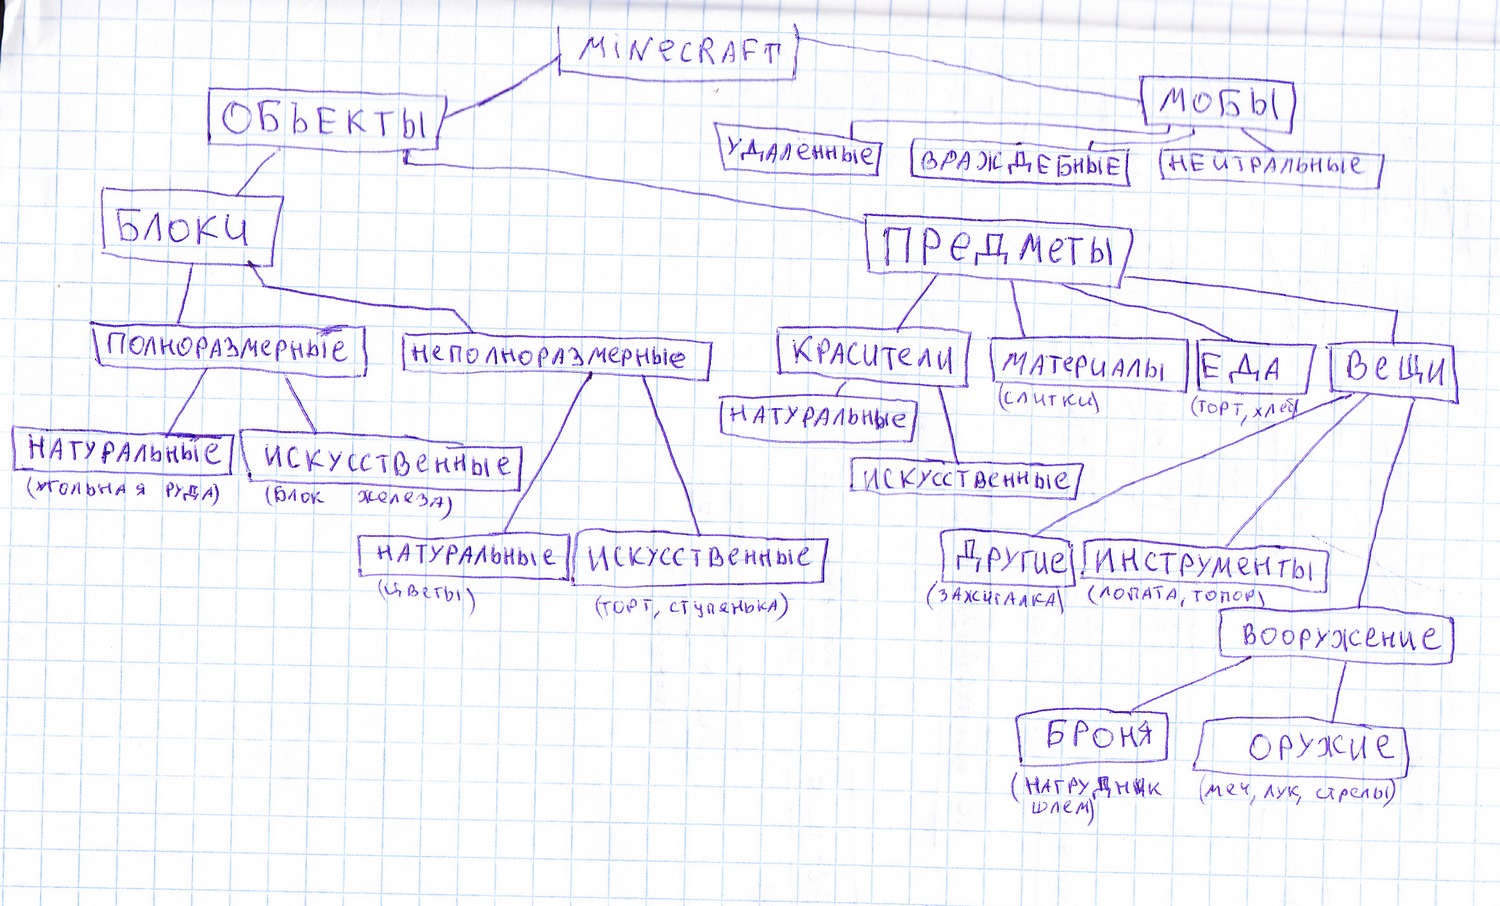 MINECRAFT
ОБЪЕКТЫ
МОБЫ
УДАЛЕННЫЕ
ВРАЖДЕБНЫЕ
НЕЙТРАЛЬНЫЕ
БЛОКИ
ПРЕДМЕТЫ
ПОЛНОРАЗМЕРНЫЕ
НЕПОЛНОРАЗМЕРНЫЕ
КРАСИТЕЛИ
МАТЕРИАЛЫ
(СЛИТКИ)
ЕДА
(ТОРТ, ХЛЕБ)
ВЕЩИ
НАТУРАЛЬНЫЕ
ИСКУССТВЕННЫЕ
НАТУРАЛЬНЫЕ
(УГОЛЬНАЯ РУДА)
ИСКУССТВЕННЫЕ
(БЛОК ЖЕЛЕЗА)
НАТУРАЛЬНЫЕ
(ЦВЕТЫ)
ИСКУССТВЕННЫЕ
(ТОРТ, СТУПЕНЬКА)
ДРУГИЕ
(ЗАЖИГАЛКА)
ИНСТРУМЕНТЫ
(ЛОПАТА, ТОПОР)
ВООРУЖЕНИЕ
БРОНЯ
(НАГРУДНИК
ШЛЕМ)
ОРУЖИЕ
(МЕЧ, ЛУК, СТРЕЛЫ)